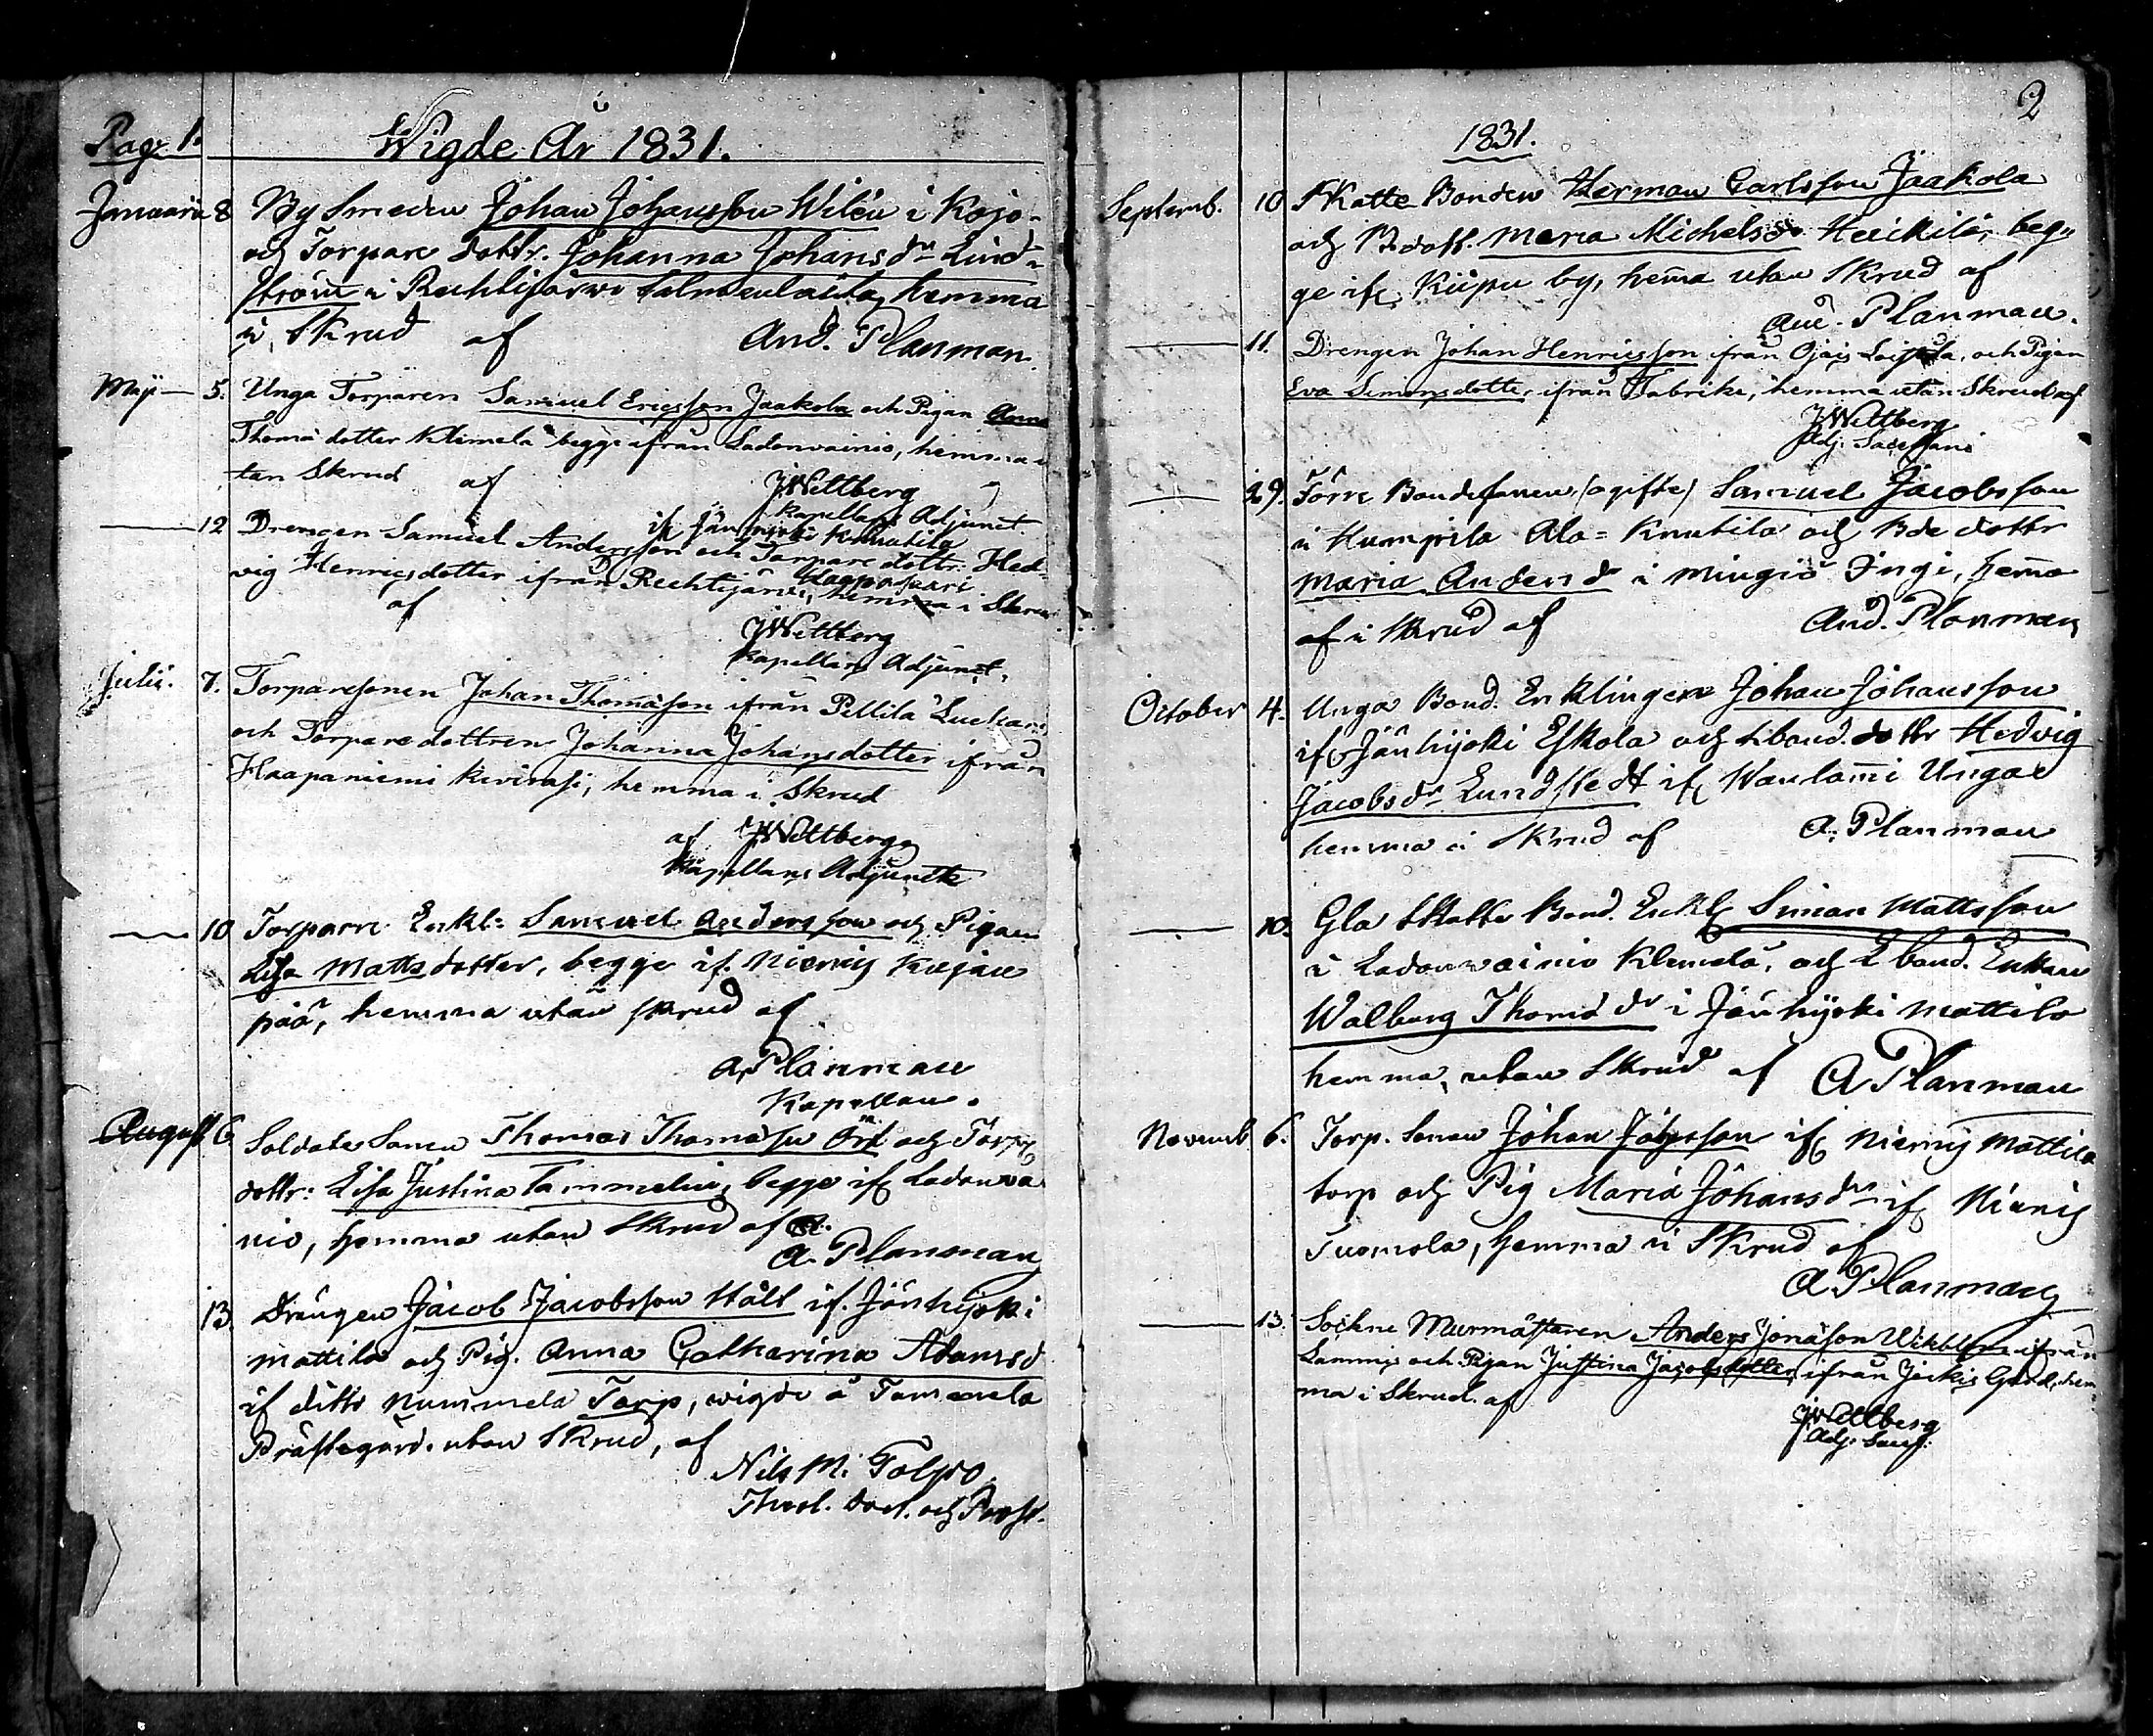 Pag. 1.
Wigde År 1831.
Januarii 8 By Smeden Johan Johansson Wilén i Kojo-
och Torpare dottr. Johanna Johansdr Lind-
ström i Rechtijärvi hemma
i Skrud af And. Planman.
Maji — 5. Unga Torparen Samuel Ericsson Jaakola och Pigan Anna
Thomä dotter Klemelä begge ifrån Ladonvainio, hemma u
tan Skrud af JWettberg
Kapellans Adjunct
— 12 if Jänhijoki Knuutila
Drengen Samuel Andersson och Torpare dottr. Hed-
vig Henricsdotter ifrån Rechtijärvi, hemma i Skrud
af
JWettberg
Kapellans Adjunct.
Julii. 7. Torparesonen Johan Thomasson ifrån Pellilä
och Torparedottren Johanna Johansdotter ifrån
Haapaniemi hemma i Skrud
af JWettberg
Kapellans Adjunct
— 10 Torpare Enkl: Samuel Andersson och Pigan
Lisa Mattsdotter, begge if. Niemis Kujan
pää, hemma utan skrud af
A. Planman
Kapellan.
August 6 Soldate Sonen Thomas Thomasson Ört och Torp.
dottr: Lisa Justina Tammelin, begge ifr Ladonvai
nio, hemma utan Skrud af
A. Planman
13. Drängen Jacob Jacobsson Håll if. Jänhijoki
Mattila och Pig. Anna Catharina Adamsd
if ditto Nummela Torp, wigde å Tammela
Prästegård. utan Skrud, af
Nils M. Tolpo
Theol. Doct. och Prost.
2
1831.
Septemb. 10 Skatte Bonden Herman Carlsson Jaakola
och B. dott. Maria Michelsdr Heikilä, beg-
ge ifr. Kuipu by, hemma utan Skrud af
And. Planman.
— 11. Drengen Johan Henricsson ifrån Ojais och Pigan
Eva Simonsdotter ifrån Fabrike, hemma utan Skrud af
JWettberg
Adj. Sacellani
— 29. Förre Bondesonen (ogifte) Samuel Jacobsson
i Humpila Ala=Knutila och Bde dottr
Maria Andersdr i Mingiö Jngi, hemma
af i Skrud af And. Planman
October 4. Unga Bond. Enklingen Johan Johansson
ifr Jänhijoki Eskola och Lband. dottr Hedvig
Jacobsdr Lundstedt ifr
hemma i Skrud af A. Planman
— 10. Gla Skatte Bond. Enkl Simon Mattsson
i Ladonvainio Klemelä, och Lband. Enkan
Walborg Thomä dr i Jänhijoki Mattila
hemma, utan Skrud af A Planman
Novemb. 6. Torp. Sonen Johan Johansson ifr Niemis Mattila
torp och Pig Maria Johansdr ifr Niemis
Tuomola, hemma i Skrud af
A Planman
— 13. Sockne Murmästaren Anders Jonasson ifrån
Lammis och Pigan Justina Jacobsdotter, ifrån Jockis Gård, hem-
ma i Skrud. af
JWettberg
Adj. Sacell.